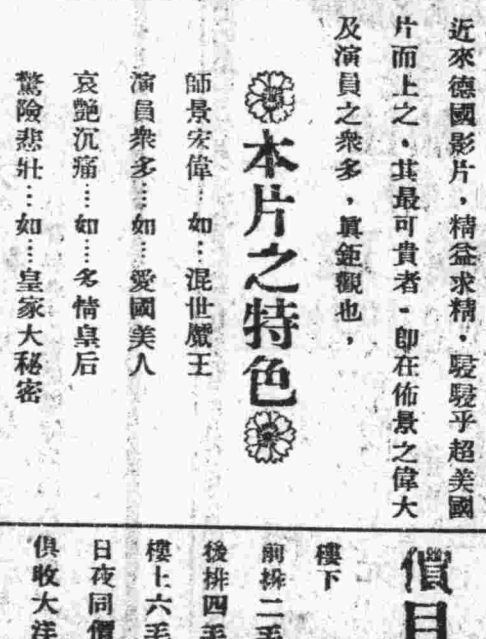 近來德國影片，精益求精，駸駸乎超美國
片而上之，其最可貴者，即在佈景之偉大
及演員之衆多，眞鉅觀也，
本片之特色
師景宏偉…如…混世魔王
演員衆多…如…愛國美人
哀艷沉痛…如…多情皇后
驚險悲壯…如…皇家大秘密
價目
樓下
前排二毛
後排四毛
樓上六毛
日夜同價
俱收大洋